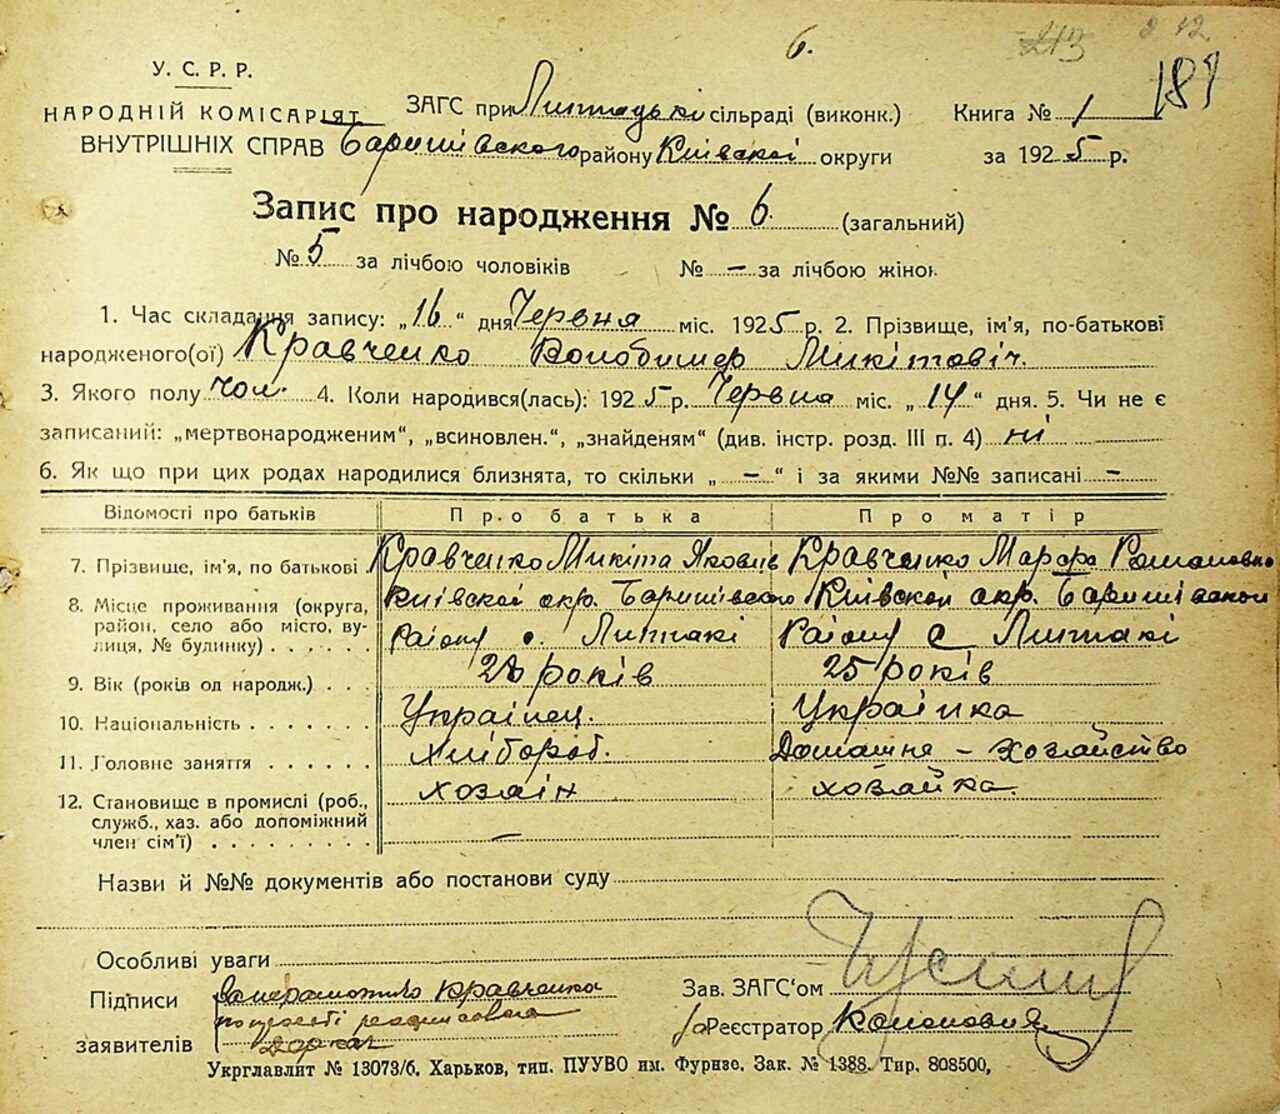 6.
213
2 12
181
У. С. Р. Р.
НАРОДНІЙ КОМІСАРІЯТ
ВНУТРІШНІХ СПРАВ
ЗАГС при Литтацькі сільраді (виконк.)
Баришівского району Київскоі округи
Книга № 1
за 1925 р.
Запис про народження № 6. (загальний)
№ 5 за лічбою чоловіків № – за лічбою жінок
1. Час складання запису: „16“ дня Червня міс. 1925 р. 2. Прізвище, ім’я, по-батькові
народженого(ої) Кравченко Володимер Микітовіч.
3. Якого полу чол. 4. Коли народився(лась): 1925 р. Червня міс. „14“ дня. 5. Чи не є
записаний: „мертвонародженим“, „всиновлен.“, „знайденям“ (див. інстр. розд. III п. 4) ні
6. Як що при цих родах народилися близнята, то скільки „–“ і за якими №№ записані –
Відомості про батьків Про батька Про матір
7. Прізвище, ім’я, по батькові Кравченко Микіта Яковлів Кравченко Марфа Романовна
8. Місце проживання (округа, район, село або місто, вулиця, № будинку) Київскоі окр. Баришівского Київскоі окр. Баришівскои
району с. Литтакі Району с Литтакі
9. Вік (років од народж.) 28 років 25 років
10. Національність Украінец. Украінка
11. Головне заняття Хлібороб. Домашне – хозайство
12. Становище в промислі (роб., служб., хаз. або допоміжний член сім’ї) хозаін хозайка.
–
Назви й №№ документів або постанови суду
Особливі уваги
Підписи
заявителів
За неграмотного Кравченка
Зав. ЗАГС‘ом
Реєстратор
Укрглавлит № 13073/6. Харьков, тип. ПУУВО им. Фурнзе. Зак. № 1388. Тир. 808500,